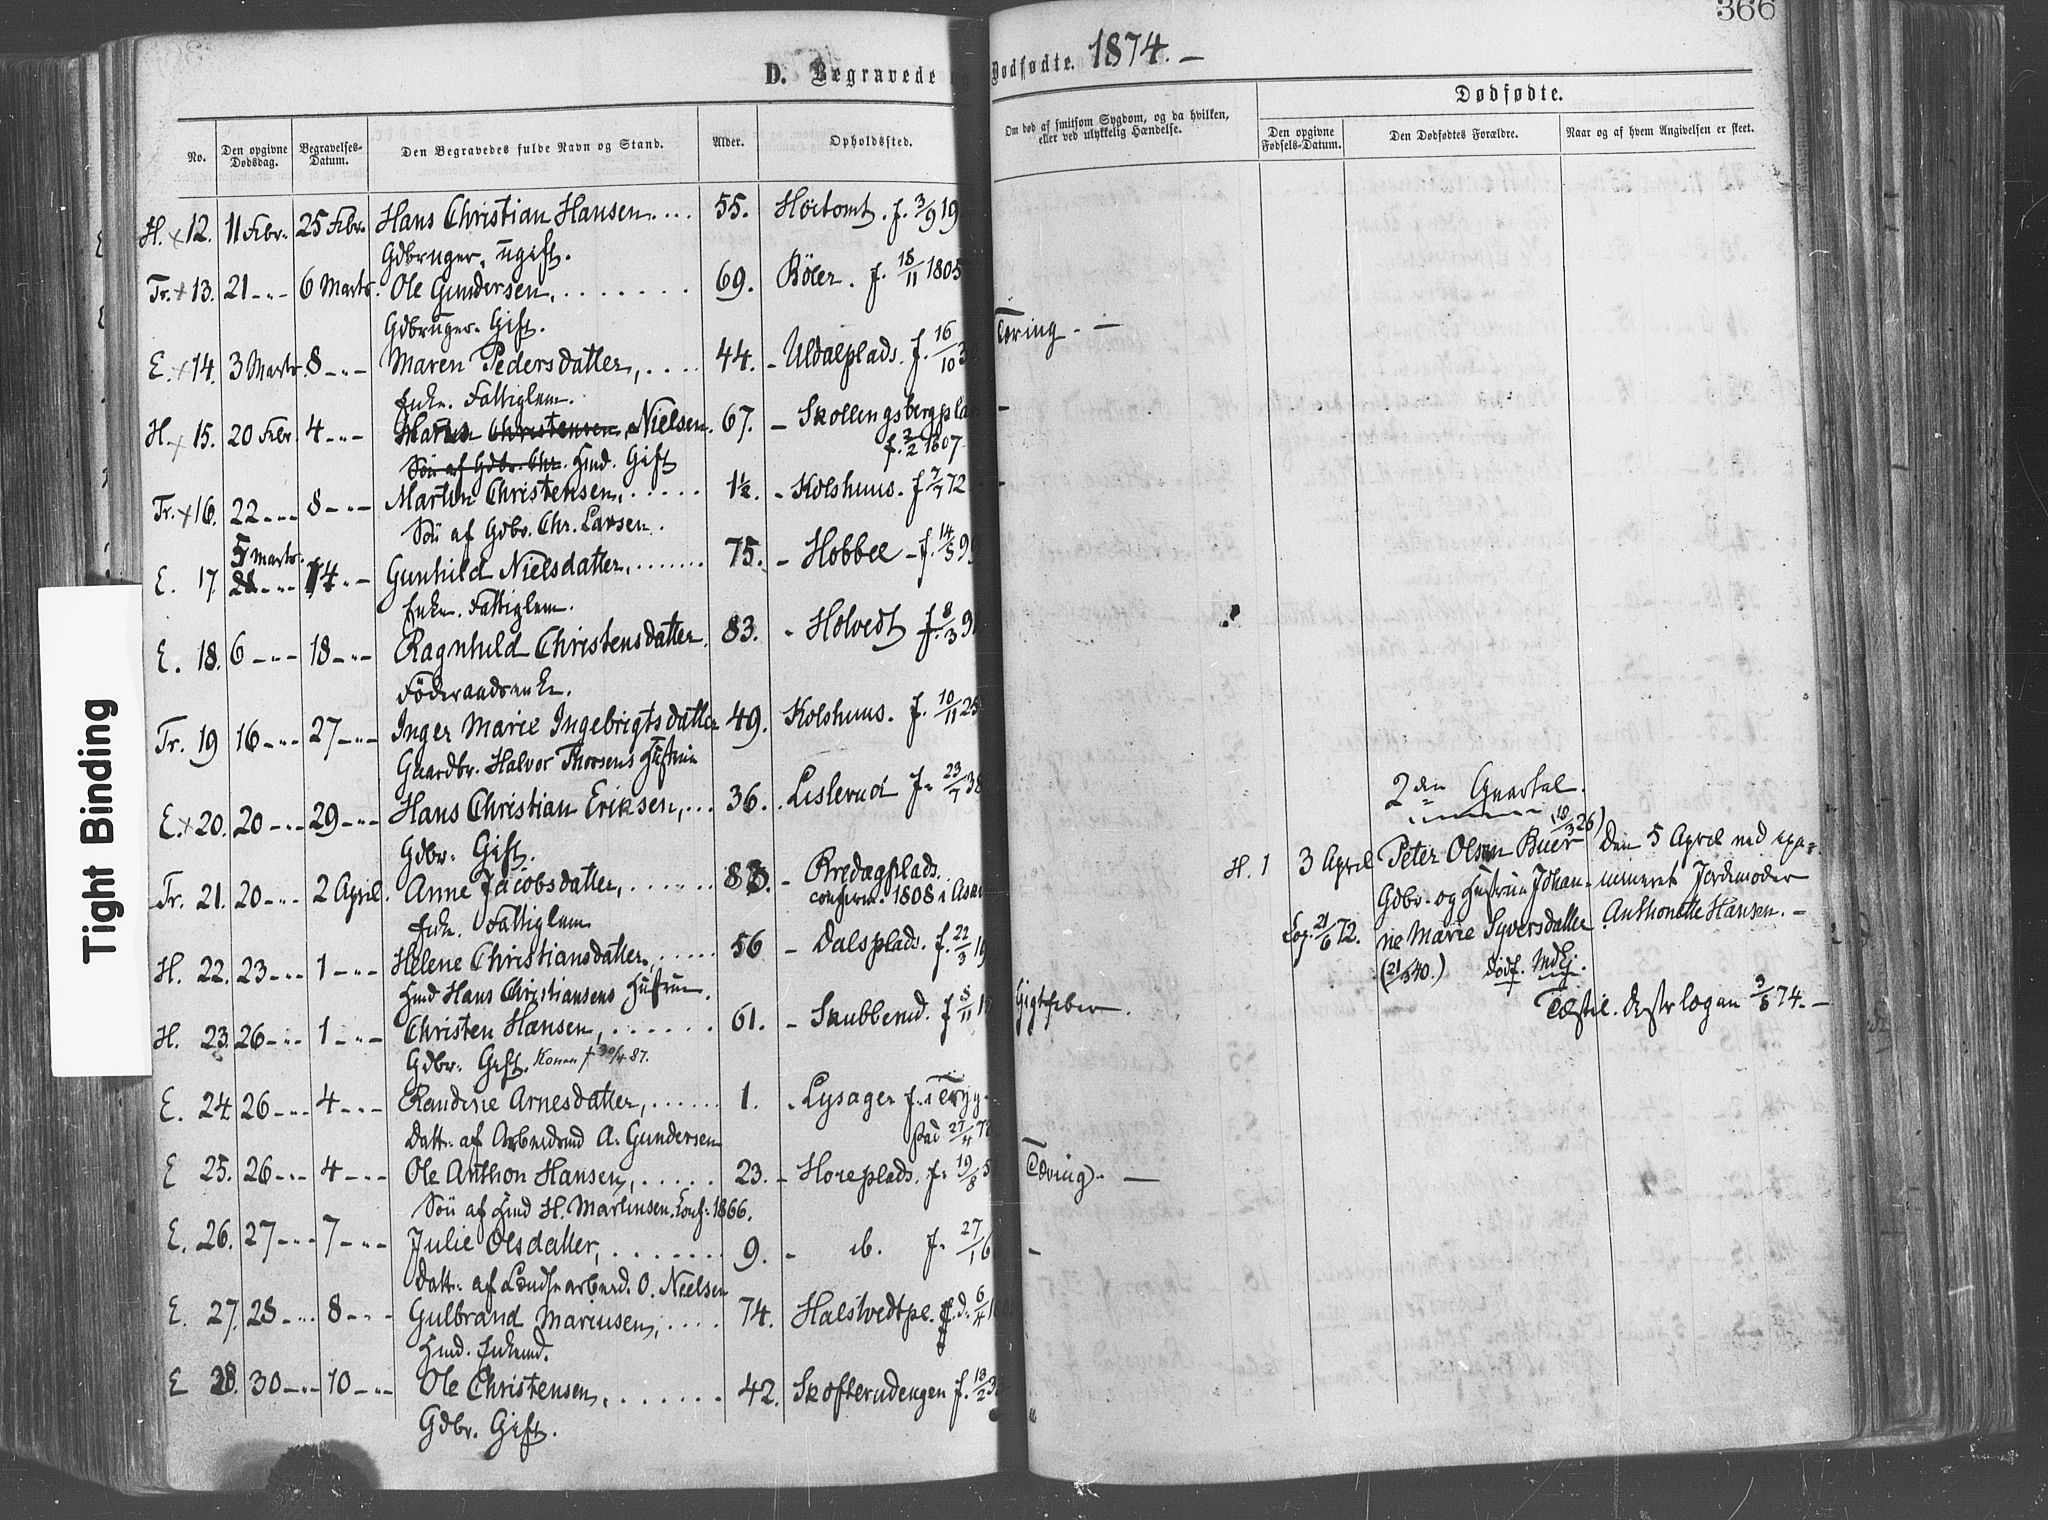 366
D. Begravede og Dødfødte. 1874. —
Dødfødte.
No.
Den opgivne Dødsdag.
Begravelses-Datum.
Den Begravedes fulde Navn og Stand.
Alder.
Opholdssted.
Om død af smitsom Sygdom, og da hvilken, eller ved ulykkelig Hændelse.
Den opgivne Fødsels-Datum.
Den Dødfødtes Forældre.
Naar og af hvem Angivelsen er skeet.
H. x 12. 11 Febr. 25 Febr. Hans Christian Hansen .... 55. Høitomt. f. 3/9 19
Gdbruger, ugift.
Tr. x 13. 21 -"- 6 Marts. Ole Gundersen, ....... 69. Böler. f. 18/11 1805
Gdbruger. Gift.
E. x 14. 3 Marts. 8 -"- Maren Pedersdatter, .... 44. - Uldalplads. f. 16/10 Tæring. —
Enke. Fattiglem.
H. x 15. 20 Febr. 4 -"- Hans Christensen, Nielsen. 67. - Skollingsbergplads
f. 2/2 1807
Søn af Gdbr. Chr. Hmd. Gift
Tr. x 16. 22 -"- 8 -"- Martin Christensen, ..... 1½. - Kolshuus. f 7/7 72
Søn af Gdbr. Chr. Larsen.
5 Marts.
E. 17. 14 -"- Gunhild Nielsdatter, ...... 75. - Hobbel - f. 14/5 99
Enke. Fattiglem.
E. 18. 6 -"- 18 -"- Ragnhild Christensdatter. 83. - Holvedt f. 8/3 91
Föderaadsenke.
Tr. 19 16 -"- 27 -"- Inger Marie Ingebrigtsdatter 49. Kolshuus. f. 10/11 25
Gaardbr. Halvor Thorsens Hustrue
E. x 20. 20 -"- 29 -"- Hans Christian Eriksen, ... 36. Lislerud f. 23/7 38
Gdbr. Gift.
Tr. 21. 20 -"- 2 April. Anne Jacobsdatter, ...... 83. - Bredagplads.
confirm. 1808 i
Enke. Fattiglem
H. 22. 23 -"- 1 -"- Helene Christiansdatter, ..... 56 - Dalsplads. f. 22/3 19
Hmd Hans Christiansens Hustrue.
H. 23. 26 -"- 1 -"- Christen Hansen, ...... 61. - Skubberud. f 8/11 Gigtfeber.
Gdbr. Gift. Konen † 30/4 87.
E. 24. 26 -"- 4 -"- Randine Arnesdatter, ...... 1. - Lysager f. i Tryg-
stad 27/4 72
Datt. af Arbeidsmd A. Gundersen
E 25. 26 -"- 4 -"- Ole Anthon Hansen, ..... 23. - Horeplads. f. 19/8 5 Tæring. —
Søn af Hmd H. Martinsen. Conf. 1866.
E. 26. 27 -"- 7 -"- Julie Olsdatter, ........ 9. - ib. f. 27/1 6
Datt. af Londearbeid. O. Nielsen
E. 27. 28 -"- 8 -"- Gulbrand Mariusen, .... 74. Halstvedtpl. f. d. 6/4
Hmd. Enkemd.
E 28. 30 -"- 10 -"- Ole Christensen, ....... 42. Skofterudengen f. 13/2 3
Gdbr. Gift.
2den Qvartal.
H. 1 3 April Peter Olsen Buer (10/3 26) Den 5 April ved exa-
Gdbr. og Hustrue Johan- mineret Jordemoder
Cop. 21/6 72. ne Marie Syversdatter Anthonette Hansen. —
(21/3 40.) dødf. Mdkj.
Tæstil. destr logan 3/8 74. —
Tight Binding